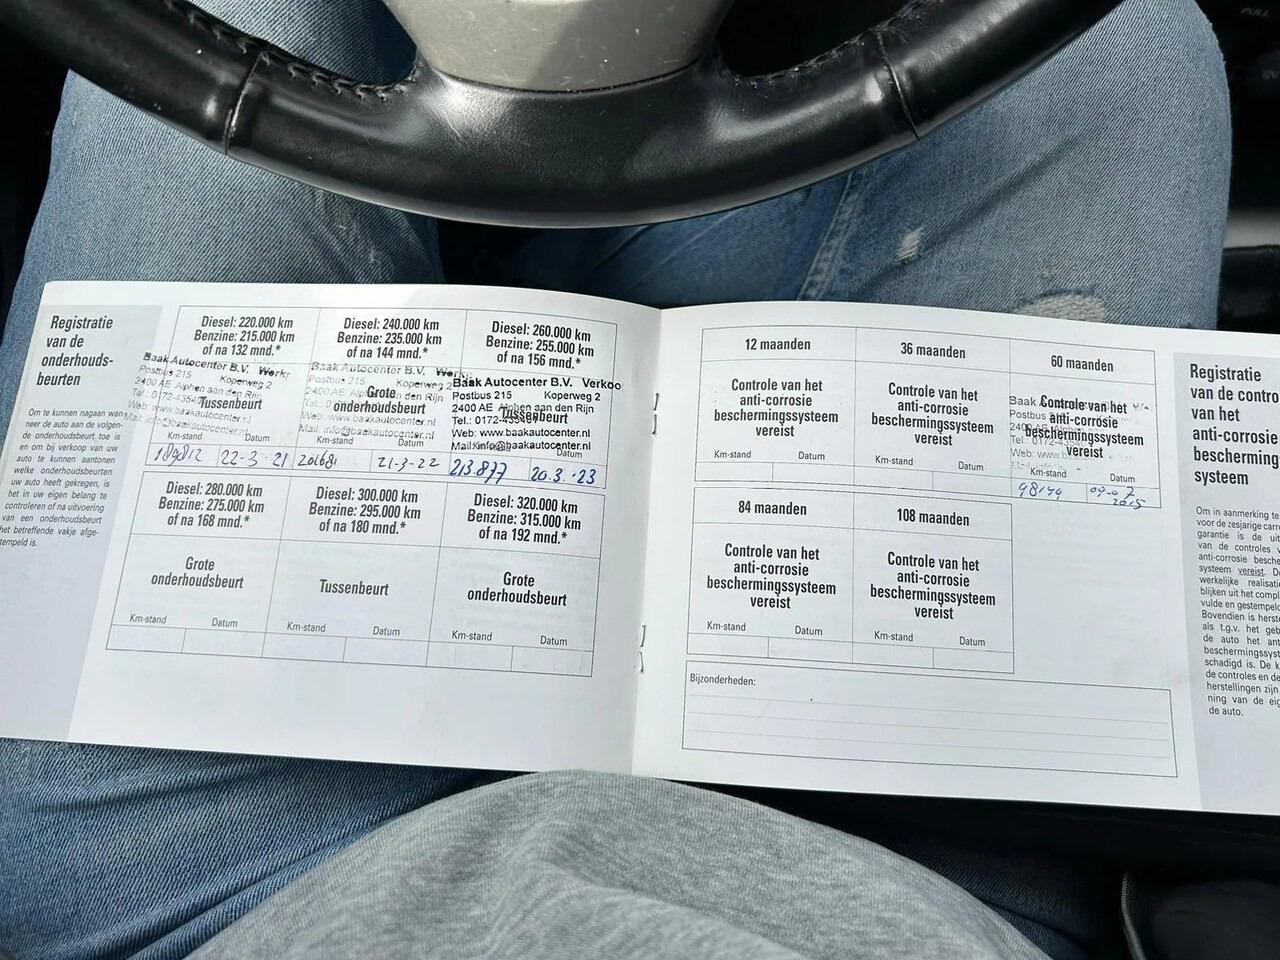 PULL
Registratie
van de
onderhouds-
beurten
Om te kunnen nagaan wan-
neer de auto aan de volgen-
de onderhoudsbeurt toe is
en om bij verkoop van uw
auto te kunnen aantonen
welke onderhoudsbeurten
uw auto heeft gekregen, is
het in uw eigen belang te
controleren of na uitvoering
van een onderhoudsbeurt
het betreffende vakje afge-
tempeld is.
Diesel: 220.000 km
Benzine: 215.000 km
of na 132 mnd.*
Baak Autocenter B.V. Werkp
Postbus 215 Koperweg 2
2400 AE Alphen aan den Rijn
Tussenbeurt
Web: www.baakautocenter.nl
Mail: info@baakautocenter.nl
Km-stand Datum
189812 22-3-21
Diesel: 240.000 km
Benzine: 235.000 km
of na 144 mnd.*
Baak Autocenter B.V. Werkp
Postbus 215 Koperweg 2
Grote
onderhoudsbeurt
2400 AE Alphen aan den Rijn
Web: www.baakautocenter.nl
Mail: info@baakautocenter.nl
Km-stand Datum
201681 21-3-22
Diesel: 260.000 km
Benzine: 255.000 km
of na 156 mnd.*
Baak Autocenter B.V. Verkoo
Postbus 215 Koperweg 2
2400 AE Alphen aan den Rijn
Tussenbeurt
Tel.: 0172-435401
Web: www.baakautocenter.nl
Datum
213.877 20.3.23
Diesel: 280.000 km
Benzine: 275.000 km
of na 168 mnd.*
Grote
onderhoudsbeurt
Km-stand Datum
Diesel: 300.000 km
Benzine: 295.000 km
of na 180 mnd.*
Tussenbeurt
Km-stand Datum
Diesel: 320.000 km
Benzine: 315.000 km
of na 192 mnd.*
Grote
onderhoudsbeurt
Km-stand Datum
12 maanden
Controle van het
anti-corrosie
beschermingssysteem
vereist
Km-stand Datum
36 maanden
Controle van het
anti-corrosie
beschermingssysteem
vereist
Km-stand Datum
60 maanden
Baak
Controle van het
Postbus
anti-corrosie
beschermingssysteem
vereist
Km-stand Datum
98149 09-07
2015
84 maanden
Controle van het
anti-corrosie
beschermingssysteem
vereist
Km-stand Datum
108 maanden
Controle van het
anti-corrosie
beschermingssysteem
vereist
Km-stand Datum
Bijzonderheden:
Registratie
van de contro
van het
anti-corrosie
bescherming
systeem
Om in aanmerking te
voor de zesjarige carr
garantie is de uit
van de controles v
anti-corrosie besche
systeem vereist. D
werkelijke realisati
blijken uit het compl
vulde en gestempel
Bovendien is herste
als t.g.v. het geb
de auto het ant
beschermingssyst
schadigd is. De k
de controles en de
herstellingen zijn
ning van de eig
de auto.